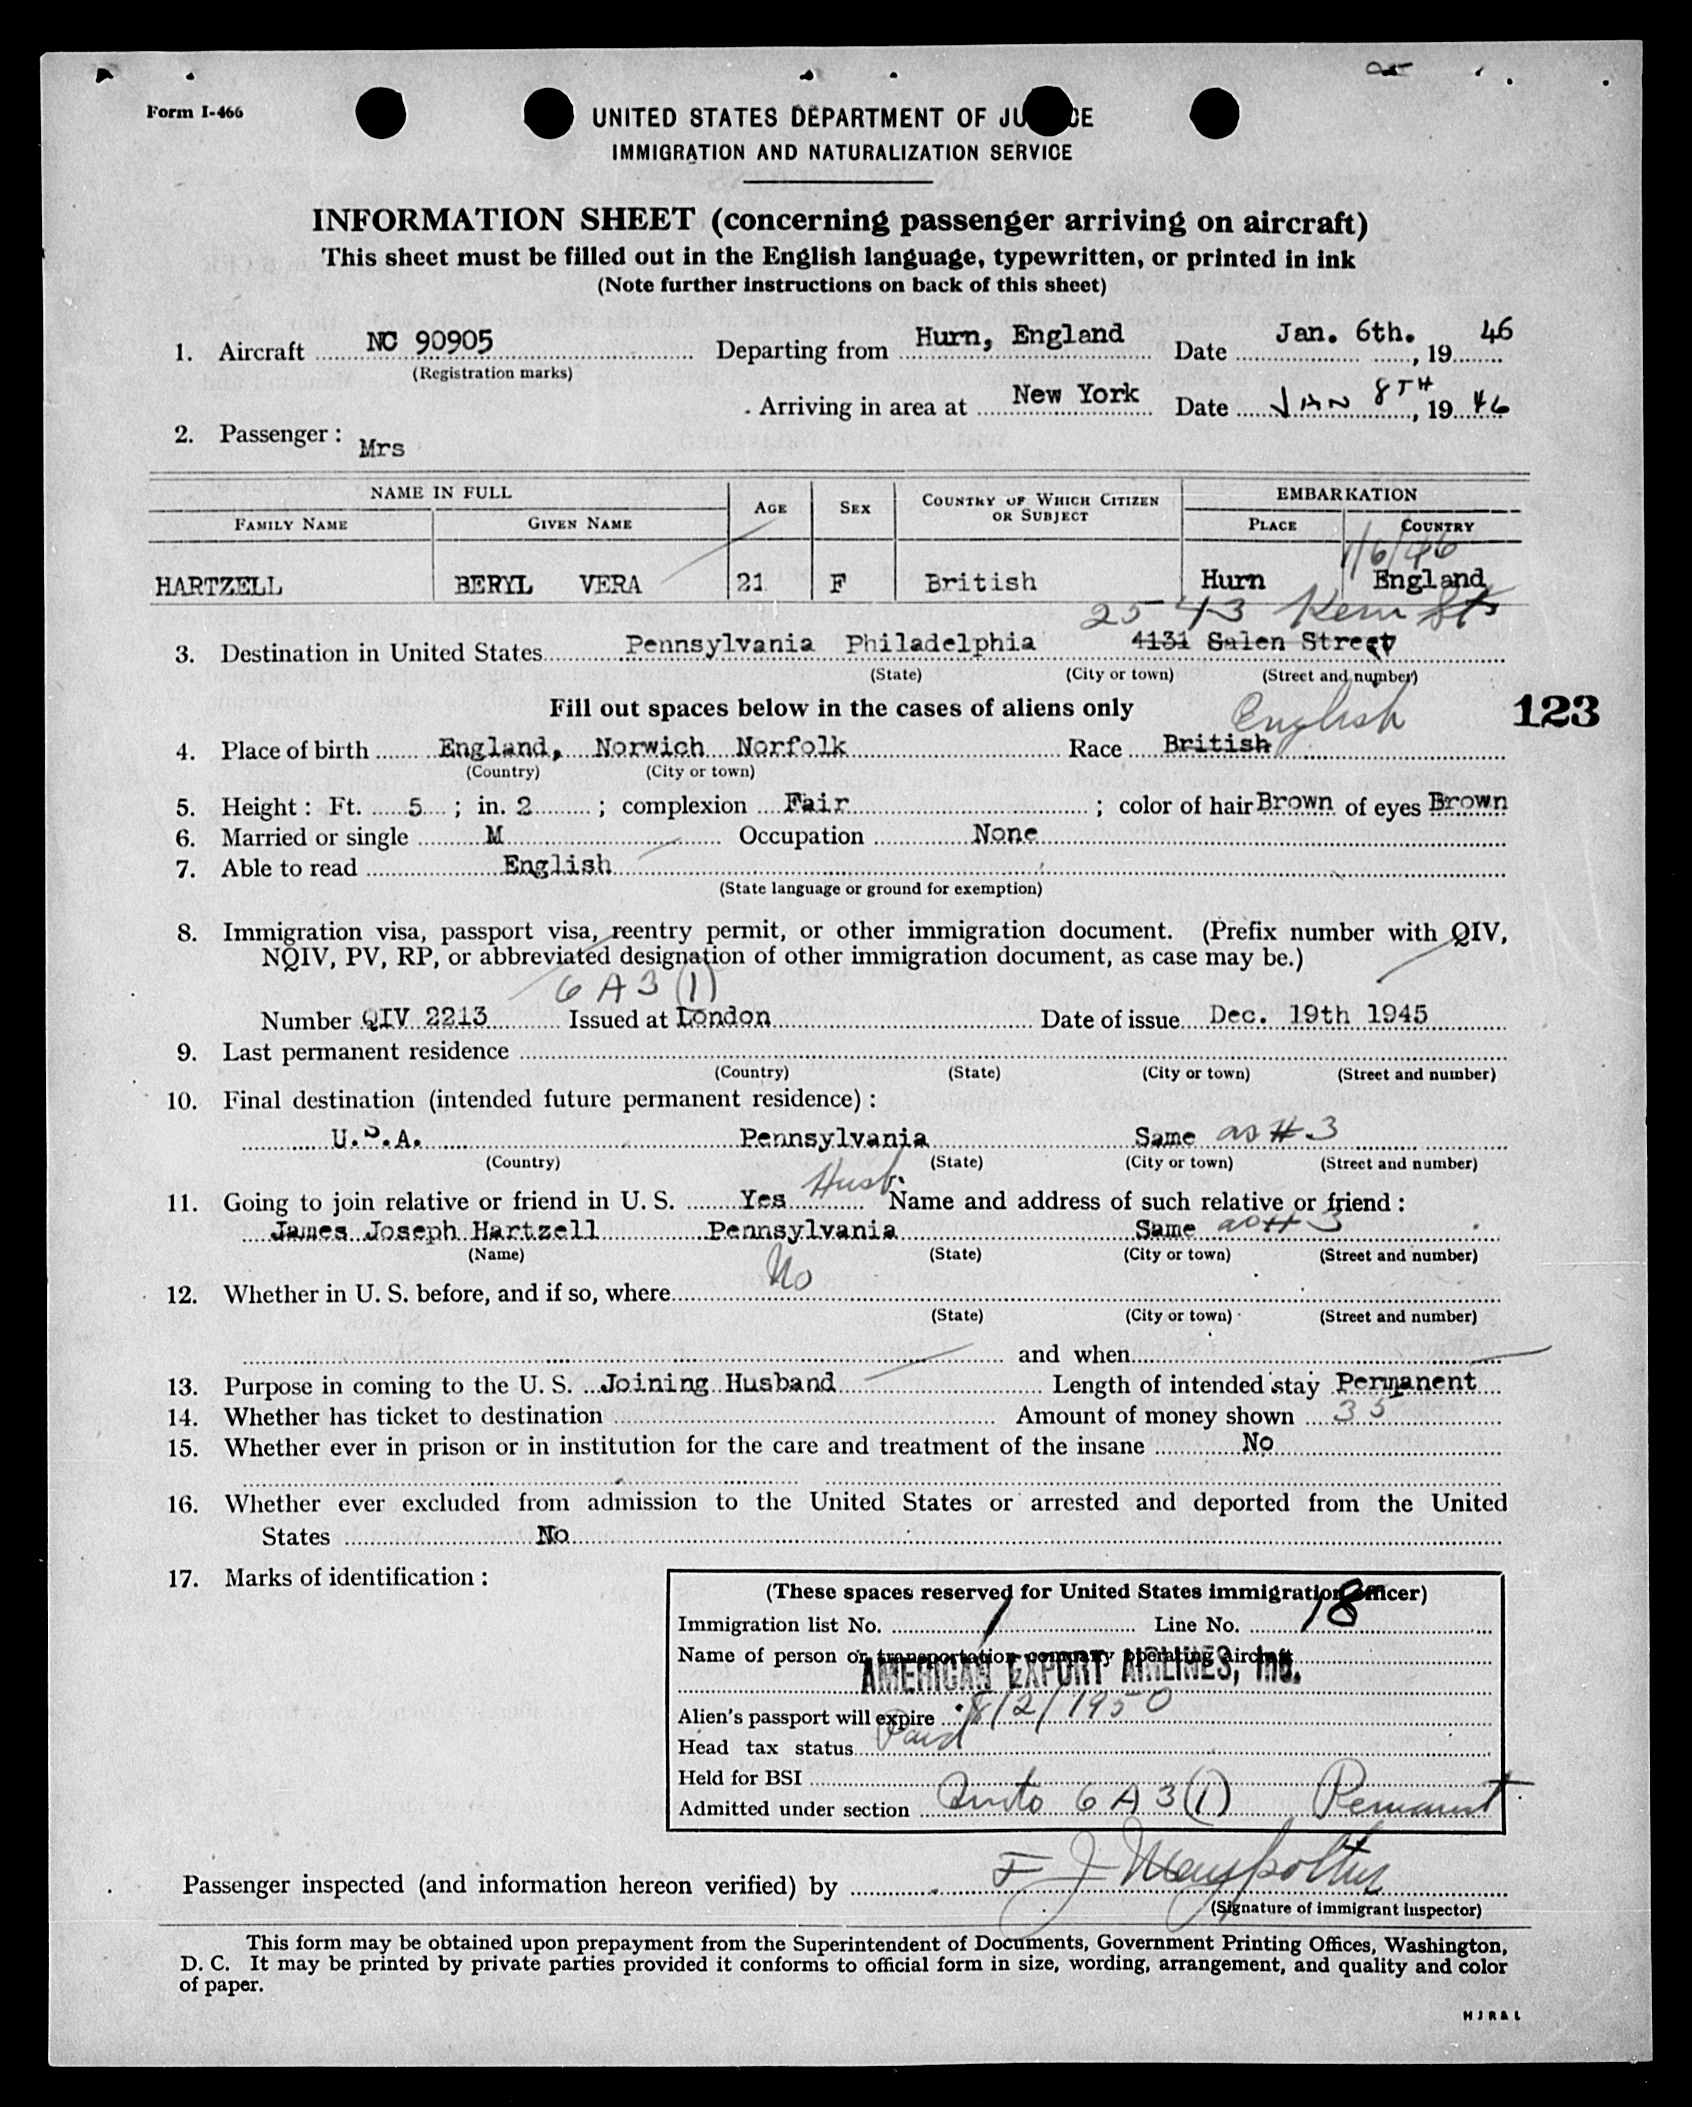 Form I-466
UNITED STATES DEPARTMENT OF JU CE
IMMIGRATION AND NATURALIZATION SERVICE
INFORMATION SHEET (concerning passenger arriving on aircraft)
This sheet must be filled out in the English language, typewritten, or printed in ink
(Note further instructions on back of this sheet)
1. Aircraft NC 90905 Departing from Hurn, England Date Jan. 6th. , 19 46
(Registration marks)
Arriving in area at New York Date JAN 8TH , 19 46
2. Passenger : Mrs
NAME IN FULL AGE SEX COUNTRY OF WHICH CITIZEN OR SUBJECT EMBARKATION
FAMILY NAME GIVEN NAME PLACE COUNTRY
1/6/46
HARTZELL BERYL VERA 21 F British Hurn England
2543 Kern St
3. Destination in United States Pennsylvania Philadelphia 4131 Salen Street
(State) (City or town) (Street and number)
Fill out spaces below in the cases of aliens only
123
English
4. Place of birth England, Norwich Norfolk Race British
(Country) (City or town)
5. Height : Ft. 5 ; in. 2 ; complexion Fair ; color of hair Brown of eyes Brown
6. Married or single M Occupation None
7. Able to read English
(State language or ground for exemption)
8. Immigration visa, passport visa, reentry permit, or other immigration document. (Prefix number with QIV,
NQIV, PV, RP, or abbreviated designation of other immigration document, as case may be.)
6 A 3 (1)
Number QIV 2213 Issued at London Date of issue Dec. 19th 1945
9. Last permanent residence
(Country) (State) (City or town) (Street and number)
10. Final destination (intended future permanent residence) :
U.S.A. Pennsylvania Same as # 3
(Country) (State) (City or town) (Street and number)
11. Going to join relative or friend in U. S. Yes Husb. Name and address of such relative or friend :
James Joseph Hartzell Pennsylvania Same as # 3
(Name) (State) (City or town) (Street and number)
12. Whether in U. S. before, and if so, where No
(State) (City or town) (Street and number)
and when
13. Purpose in coming to the U. S. Joining Husband Length of intended stay Permanent
14. Whether has ticket to destination Amount of money shown 35
15. Whether ever in prison or in institution for the care and treatment of the insane No
16. Whether ever excluded from admission to the United States or arrested and deported from the United
States No
17. Marks of identification :
(These spaces reserved for United States immigration officer)
Immigration list No. 1 Line No. 18
Name of person or transportation company operating aircraft
AMERICAN EXPORT AIRLINES, Inc.
Alien's passport will expire 8/2/1950
Head tax status Paid
Held for BSI
Admitted under section Quota 6 A 3 (1) Permanent
Passenger inspected (and information hereon verified) by F J
(Signature of immigrant inspector)
This form may be obtained upon prepayment from the Superintendent of Documents, Government Printing Offices, Washington,
D. C. It may be printed by private parties provided it conforms to official form in size, wording, arrangement, and quality and color
of paper.
H J R & L